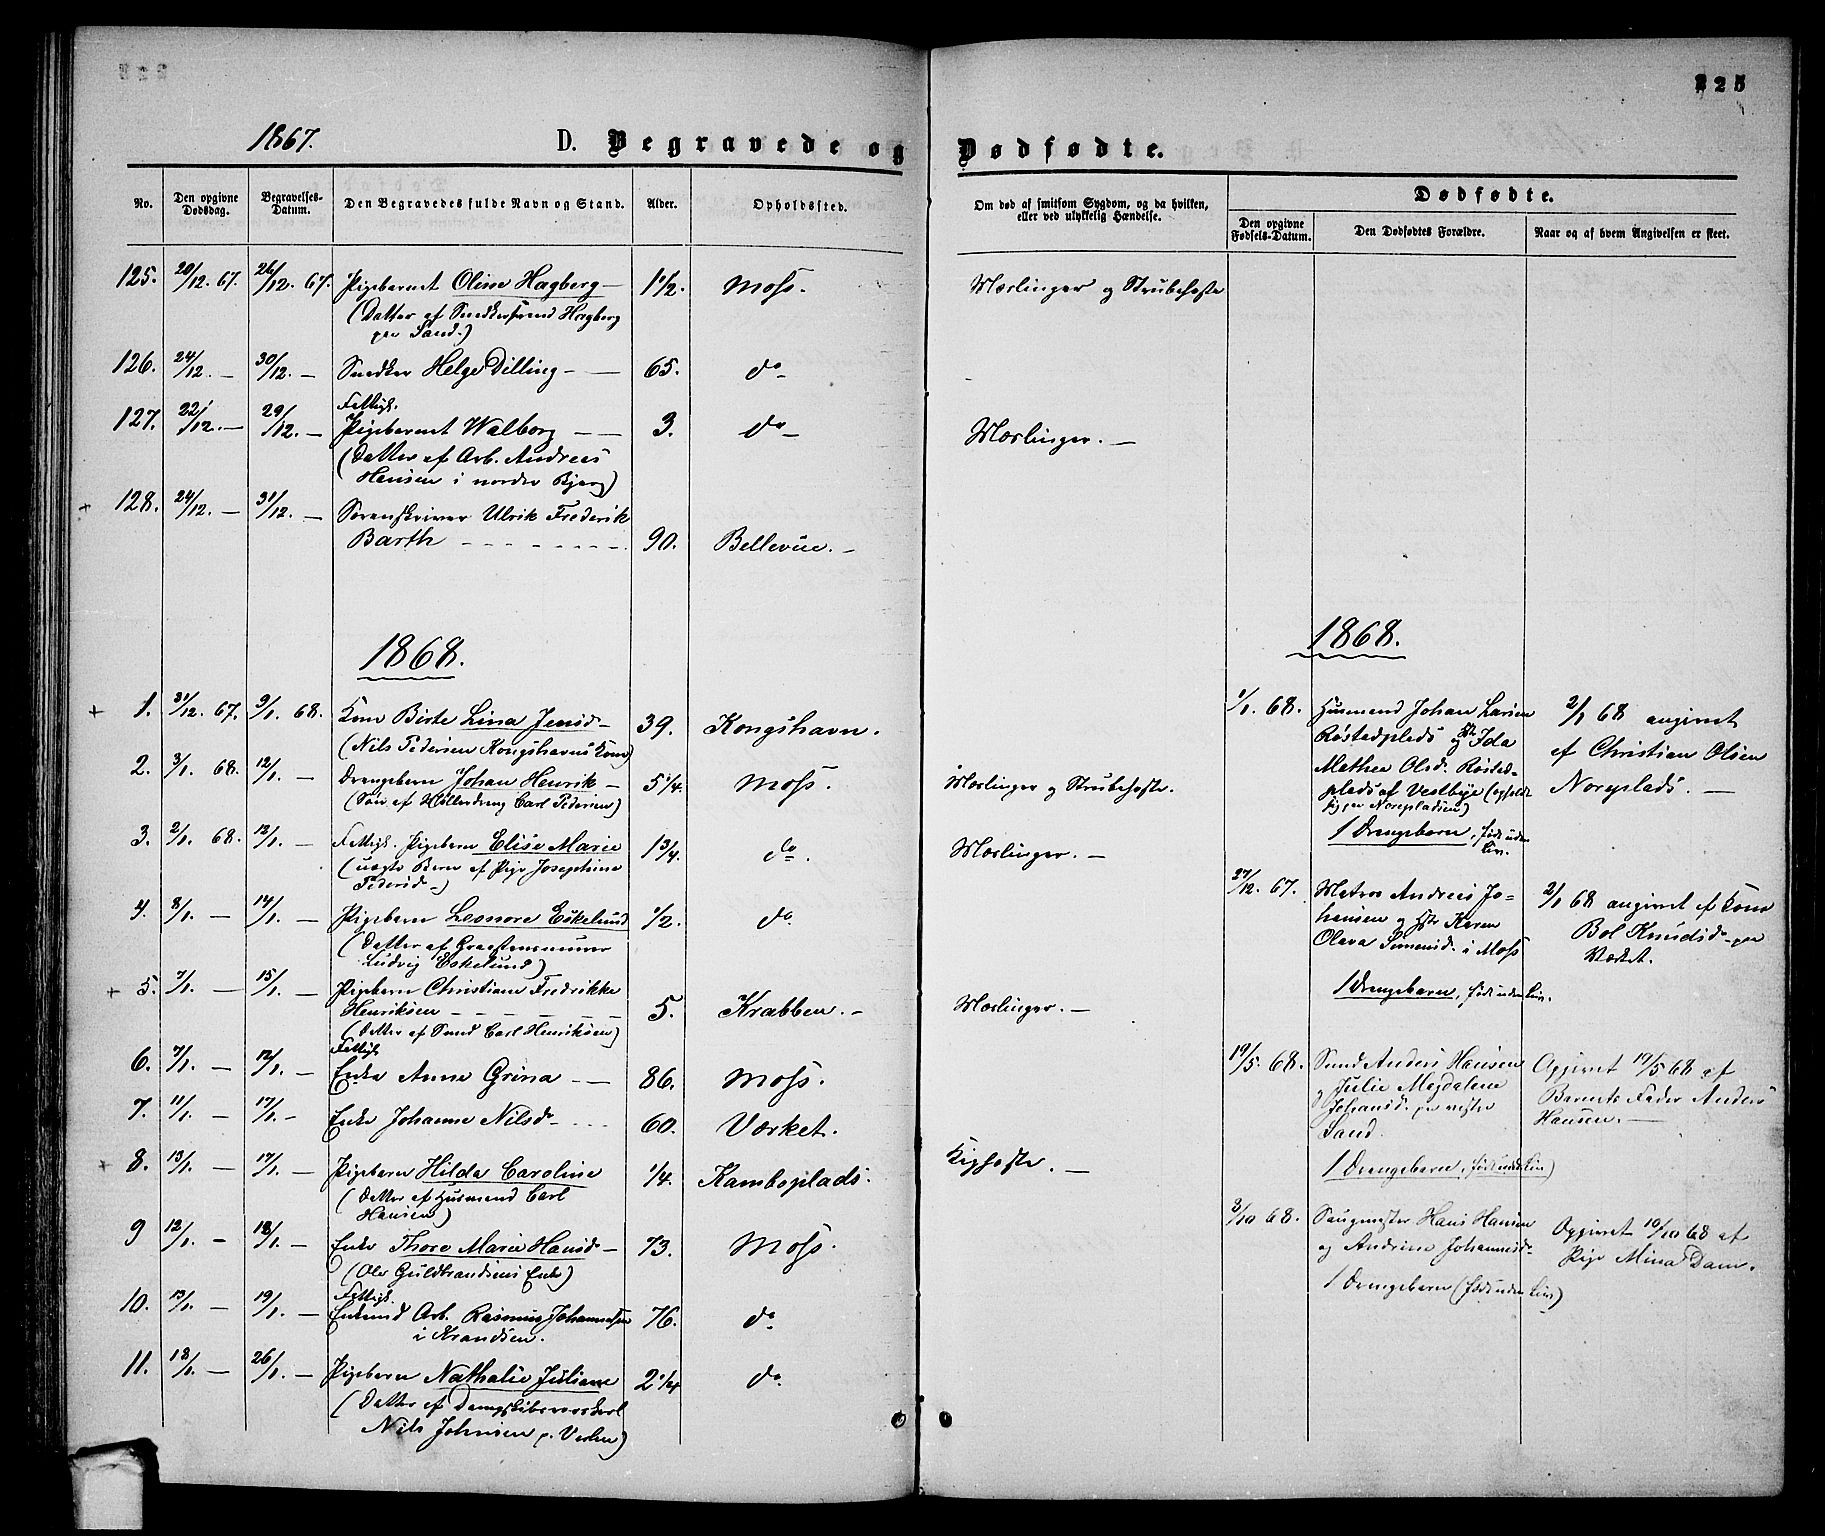 225
1867.
D. Begravede og Dødfødte.
No.
Den opgivne Dødsdag.
Begravelses-Datum.
Den Begravedes fulde Navn og Stand.
Alder.
Opholdssted.
Om død af smitsom Sygdom, og da hvilken, eller ved ulykkelig Hændelse.
Dødfødte.
Den opgivne Fødsels-Datum.
Den Dødfødtes Forældre.
Naar og af hvem Angivelsen er skeet.
125. 20/12. 67. 26/12. 67. Pigebarnet Oline Hagberg — 1 1/2. Moss. Mæslinger og Strubehoste
(Datter af Snedkersvend Hagberg
paa Sand.)
126. 24/12. — 30/12. — Snedker Helge Dilling — 65. do —
Fattigt.
127. 22/12. — 29/12. — Pigebarnet Walborg — 3. do — Mæslinger. —
(Datter af Arb. Andreas
Hansen i nordre Bjerg)
+ 128. 24/12. — 31/12. — Sorenskriver Ulrik Frederik
Barth — 90. Bellevue. —
1868.
+ 1. 31/12. 67. 9/1. 68. Kone Birte Lina Jensd — 39. Kongshavn.
(Nils Pedersen Kongshavns Kone)
2. 3/1. 68. 12/1. — Drengebarn Johan Henrik — 5 1/4. Moss. Mæslinger og Strubehoste.
(Søn af Møllerdreng Carl Pedersen)
3. 2/1. 68. 12/1. — Fattigt. Pigebarn Elise Marie 1 3/4. do. Mæslinger. —
(uægte Barn af Pige Josephine
Pedersd —)
4. 8/1. — 14/1. — Pigebarn Leonore Eskelund 1/2. do.
(Datter af
Ludvig Eskelund)
+ 5. 7/1. — 15/1. — Pigebarn Christiane Fredrikke
Henriksen — 5. Krabben. — Mæslinger. —
(Datter af Smd Carl Henriksen)
Fattigt
6. 7/1. — 12/1. — Enke Anne Grina — 86. Moss.
7. 11/1. — 17/1. — Enke Johanne Nilsd — 60. Værket.
+ 8. 13/1. — 17/1. — Pigebarn Hilda Caroline 1/4. Kamboplads. Kighoste. —
(Datter af Husmand Carl
Hansen)
9 12/1. — 18/1. — Enke Thore Marie Hansd — 73. Moss.
(Ole Guldbrandsens Enke)
Fattigt.
10. 13/1. — 19/1. — Enkemd Arb. Rasmus Johannesen 76. do
i Krandsen.
11. 18/1. — 26/1. — Pigebarn Nathalie Juliane 2 1/4 do.
(Datter af
Nils Johnsen p. Verlen)
1868.
1/1. 68. Husmand Johan Larsen 2/1 68 angivet
Røstadplads og H. Ida af Christian Olsen
Mathea Olsd. Røstad- Noreplads. —
plads af Vestbye (opholdt
sig paa Norepladsen)
1 Drengebarn, født uden
Liv.
27/12. 67. Matros Andreas Jo- 2/1 68 angivet af Kone
hansen og Hst Karen Bol Knudsd — paa
Olava Simensd. i Moss Værket.
1 Drengebarn, født uden Liv.
19/5. 68. Smd Anders Hansen Opgivet 19/5 68 af
og Julie Magdalene Barnets Fader Anders
Johansd. paa vestre Hansen. —
Sand.
1 Drengebarn, født uden Liv)
8/10 68. Saugmester Hans Hansen Opgivet 10/10 68 af
og Andrine Johannesd. Pige Mina Dam.
1 Drengebarn (født uden Liv)